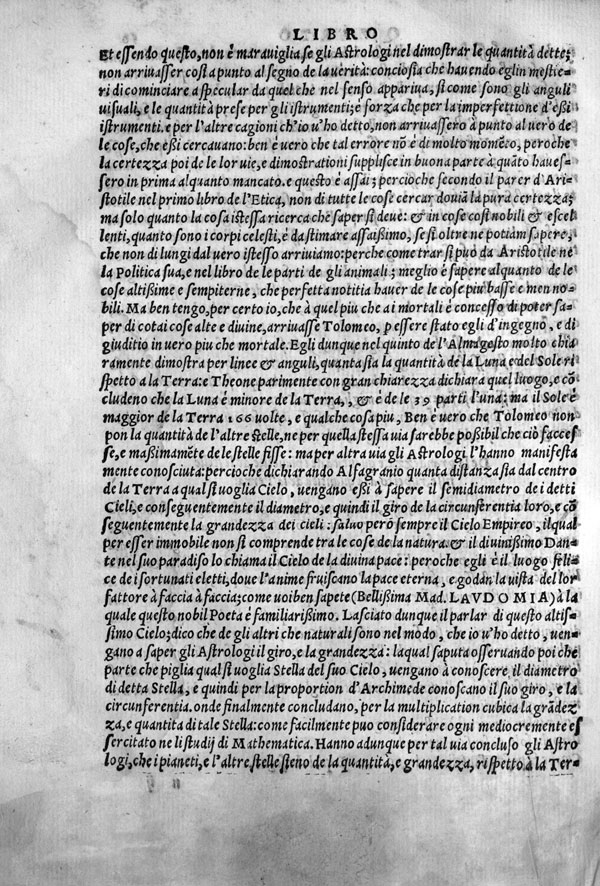 LIBRO
Et essendo questo, non è maraviglia se gli Astrologi nel dimostrar le quantità dette;
non arriuasser così a punto al segno de la uerità: conciosia che hauendo eglin mestie-
ri di cominciare a specular da quel che nel senso appariua, si come sono gli anguli
uisuali, e le quantità prese per gli istrumenti; è forza che per la imperfettione d'eßi
istrumenti. e per l'altre cagioni ch'io u'ho detto, non arriuassero à punto al uero de
le cose, che eßi cercauano: ben è uero che tal errore nõ è di molto momẽto, peroche
la certezza poi de le lor uie, e dimostrationi supplisce in buona parte à quãto haues-
sero in prima alquanto mancato. e questo è assai; percioche secondo il parer d'Ari-
stotile nel primo libro de l'Etica, non di tutte le cose cercar douiã la pura certezza;
ma solo quanto la cosa istessa ricerca che saper si deue: & in cose così nobili & escel
lenti, quanto sono i corpi celesti, è da stimare assaißimo, se si oltre ne potiàm sapere,
che non di lungi dal uero istesso arriuiamo: perche come trar si può da Aristotile ne
la Politica sua, e nel libro de le parti de gli animali; meglio è sapere alquanto de le
cose altißime e sempiterne, che perfetta notitia hauer de le cose piu basse e men no-
bili. Ma ben tengo, per certo io, che à quel piu che ai mortali è concesso di poter sa-
per di cotai cose alte e diuine, arriuasse Tolomeo, p essere stato egli d'ingegno, e di
giuditio in uero piu che mortale. Egli dunque nel quinto de l'Almagesto molto chia
ramente dimostra per linee & anguli, quanta sia la quantità de la Luna e del Sole ri
spetto a la Terra: e Theone parimente con gran chiarezza dichiara quel luogo, e cõ
cludeno che la Luna è minore de la Terra, , & è de le 39 parti l'una: ma il Sole è
maggior de la Terra 166 uolte, e qualche cosa piu, Ben è uero che Tolomeo non
pon la quantità de l'altre stelle, ne per quella stessa uia sarebbe poßibil che ciò facces
se, e maßimamẽte de le stelle fisse: ma per altra uia gli Astrologi l'hanno manifesta
mente conosciuta: percioche dichiarando Alfagranio quanta distanza sia dal centro
de la Terra a qual si uoglia Cielo, uengano eßi à sapere il semidiametro de i detti
Cieli, e conseguentemente il diametro; e quindi il giro de la circunferentia loro, e cõ
seguentemente la grandezza dei cieli: saluo però sempre il Cielo Empireo, il qual
per esser immobile non si comprende tra le cose de la natura. & il diuinißimo Dan-
te nel suo paradiso lo chiama il Cielo de la diuina pace: peroche egli è il luogo feli-
ce de i fortunati eletti, doue l'anime fruiscano la pace eterna, e godan la uista del lor
fattore à faccia à faccia: come uoi ben sapete (Bellißima Mad. LAVDOMIA) à la
quale questo nobil Poeta è familiarißimo. Lasciato dunque il parlar di questo altis-
simo Cielo; dico che de gli altri che naturali sono nel modo, che io u'ho detto, uen-
gano a saper gli Astrologi il giro, e la grandezza: la qual saputa osseruando poi che
parte che piglia qual si uoglia Stella del suo Cielo, uengano à conoscere il diametro
di detta Stella, e quindi per la proportion d'Archimede conoscano il suo giro, e la
circunferentia. onde finalmente concludano, per la multiplication cubica la grãdez
za, e quantita di tale Stella: come facilmente puo considerare ogni mediocremente es
sercitato ne li studij di Mathematica. Hanno adunque per tal uia concluso gli Astro
logi, che i pianeti, e l'altre stelle sieno de la quantità, e grandezza, rispetto à la Ter-